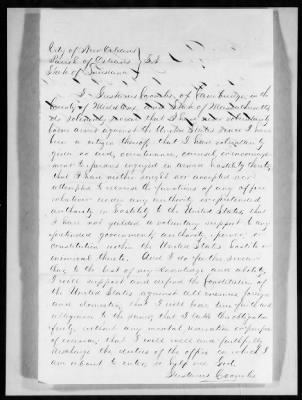 City of New Orleans
Parish of Orleans } S.S.
State of Louisiana
I Gustavus of Cambridge in the
County of Middlesex and State of Massachusetts
do solemnly swear that I have never voluntarily
borne arms against the United States since I have
been a citizen thereof that I have voluntarily
given no aid, countenance, counsel or encourage
ment to persons engaged in armed hostility thereto,
that I have neither sought nor accepted nor
attempted to exercise the functions of any office
whatever under any authority or pretended
authority in hostility to the United States, that
I have not yielded a voluntary support to any
pretended government, authority, power or
constitution within the United States hostile or
inimical thereto. And I do further swear
that to the best of my knowledge and ability
I will support and defend the Constitution of
the United States against all enemies foreign
and domestic, that I will bear true faith and
allegiance to the same, that I take this obligation
freely, without any mental reservation or purpose
of evasion, that I will well and faithfully
discharge the duties of the office on which I
am about to enter, so help me God.
Gustavus